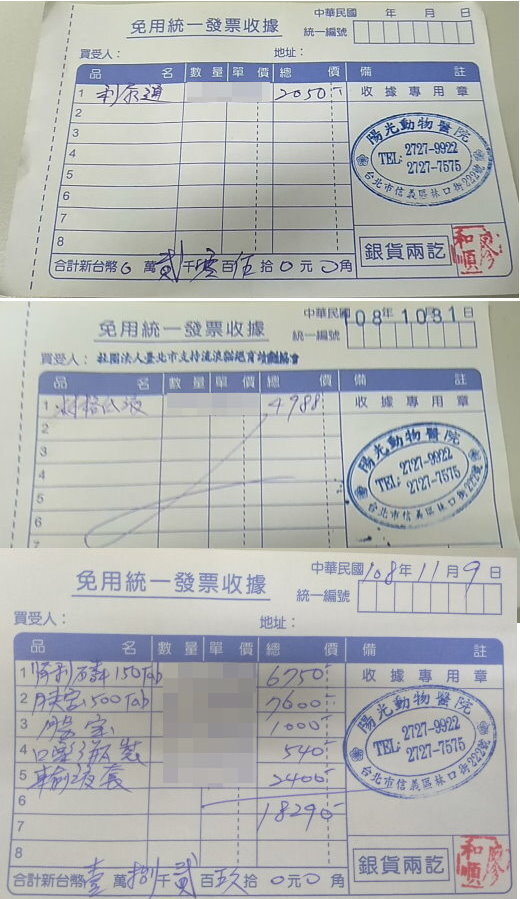 免用統一發票收據
中華民國 年 月 日
統一編號
買受人： 地址：
品 名 數量 單價 總 價 備 註
1 利尿通 2050 收據專用章
2
3
4
5
6
7
8
陽光動物醫院
TEL: 2727-9922
2727-7575
台北市信義區林口街222號
銀貨兩訖
合計新台幣 0 萬 貳 千 零 百 伍 拾 0 元 0 角
免用統一發票收據
中華民國 108年 10 31日
統一編號
買受人：社團法人臺北市支持流浪貓絕育計劃協會
品 名 數量 單價 總 價 備 註
1 4988 收據專用章
2
3
4
5
6
7
陽光動物醫院
TEL: 2727-9922
2727-7575
台北市信義區林口街222號
免用統一發票收據
中華民國 108年 11月 9日
統一編號
買受人： 地址：
品 名 數量 單價 總 價 備 註
1 腎利磷 150Tab 6750 收據專用章
2 胰宝 500Tab 7600
3 腸宝 1000
4 540
5 輸液套 2400
6 18290
7
8
陽光動物醫院
TEL: 2727-9922
2727-7575
台北市信義區林口街222號
銀貨兩訖
合計新台幣 壹 萬 捌 千 貳 百 玖 拾 0 元 0 角